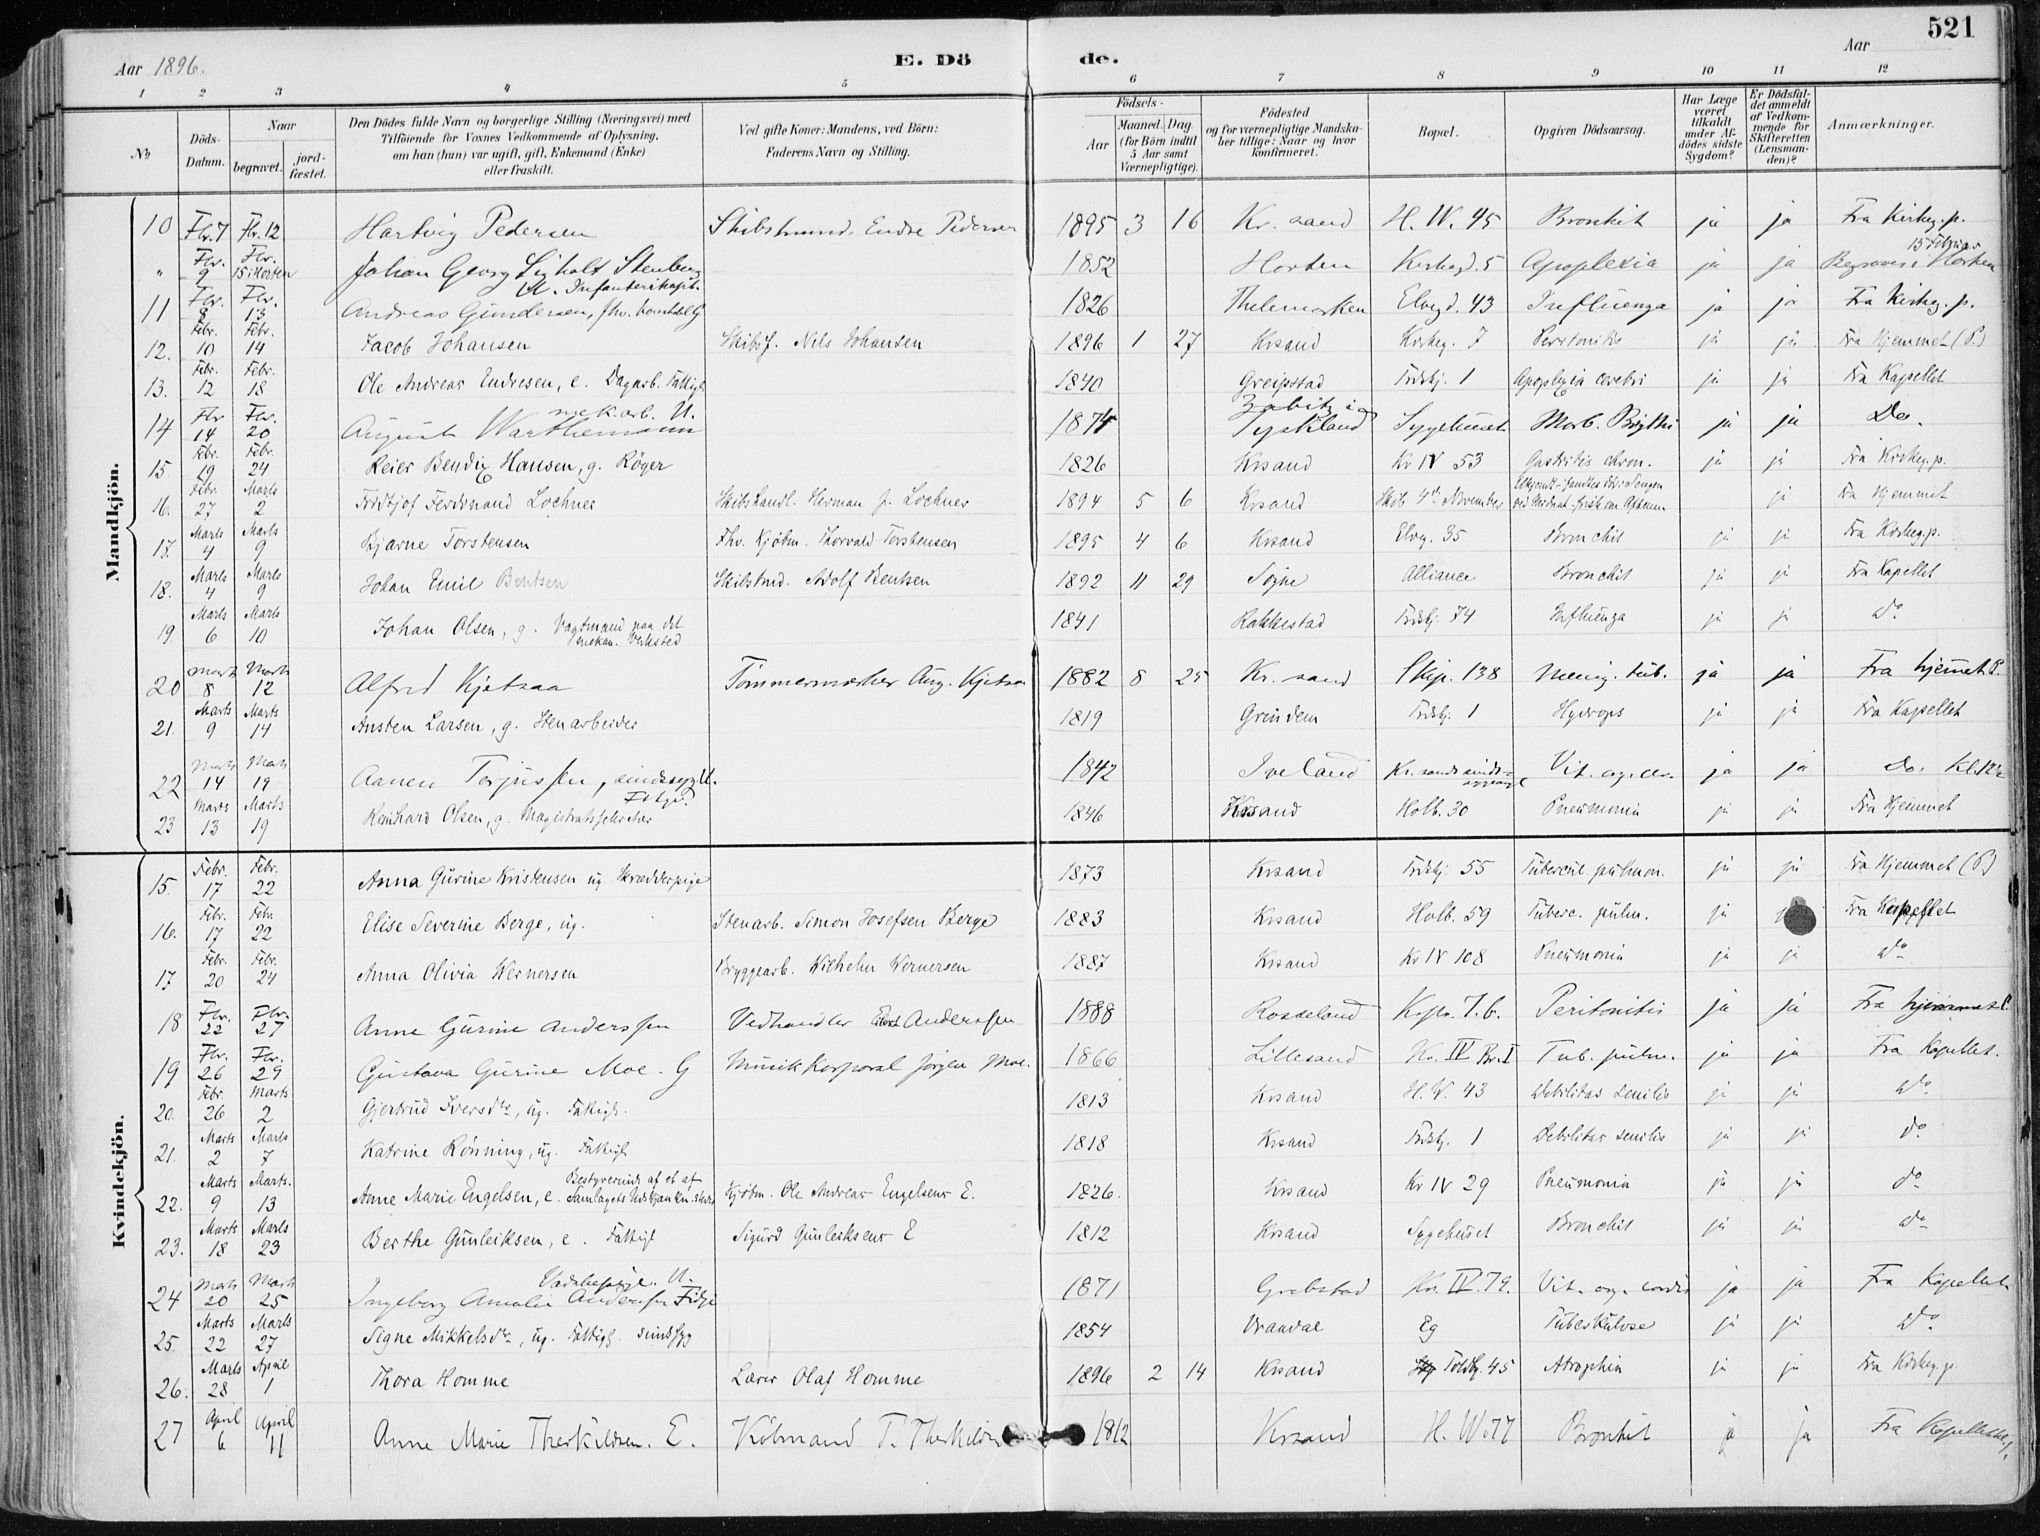 521
Aar 1896. E. Dö de. Aar
1 2 3 4 5 6 7 8 9 10 11 12
No
Döds-Datum.
Naar
begravet.
jordfæstet.
Den Dödes fulde Navn og borgerlige Stilling (Næringsvei) med
Tilföiende for Voxnes Vedkommende af Oplysning,
om han (hun) var ugift, gift, Enkemand (Enke)
eller fraskilt.
Ved gifte Koner: Mandens, ved Börn:
Faderens Navn og Stilling.
Födsels-
Aar
Maaned. Dag.
(for Börn indtil
5 Aar samt
Værnepligtige).
Födested
og for værnepligtige Mandskaber tillige: Naar og hvor
konfirmeret.
Bopæl.
Opgiven Dödsaarsag.
Har Læge
været
tilkaldt
under Afdödes sidste
Sygdom?
Er Dödsfaldet anmeldt
af Vedkommende for
Skifteretten
(Lensmanden)?
Anmærkninger.
Mandkjön.
10 Fbr. 7 Fbr. 12 Hartvig Pedersen Skibstømmd. Endre Pedersen 1895 3 16 Kr. sand H. W. 45 Bronkit ja ja Fra Kirkeg. p.
" Fbr. 9 Fbr. 15 i Horten Johan Georg Stenberg U. Infanterikapt. 1852 Horten Kirkegd. 5 Apoplexia ja ja Begraves i Horten 15 Februar
11 Fbr. 8 Fbr. 13 Andreas Gundersen, fhv. G 1826 Thelemarken Elvegd. 43 Influenza ja ja Fra Kirkeg. p.
12. Febr. 10 Febr. 14 Jacob Johansen Skibsf. Nils Johansen 1896 1 27 Krsand Kirkeg. 7 Peritonitis ja ja Fra Hjemmet (P.)
13. Febr. 12 Febr. 18 Ole Andreas Endresen, e. Dagarb. Fattigl. 1840 Greipstad Tordskj. 1 Apoplexia cerebri ja ja Fra Kapellet
14 Fbr 14 Fbr. 20 August Warthemann mek. arb. U. 1874 Zabitz i Tyskland Sygehuset Morb. Brigthi ja ja Do.
15. Febr. 19 Febr. 24 Reier Bendix Hansen, g. Röger 1826 Krsand Kv IV 53 Gastritis chron. ja ja Fra Kirkeg. p.
16. Febr. 27 Marts 2 Fridtjof Ferdinand Lochner Skibshandl. Herman J. Lochner 1894 5 6 Krsand Skib 4de November ja Fra Hjemmet
17. Marts 4 Marts 9 Bjarne Torstensen Fhv. Kjøbm. Thorvald Torstensen 1895 4 6 Krsand Elvg. 35 Bronchit ja ja Fra Kirkeg. p.
18. Marts 4 Marts 9 Johan Emil Bentsen Skibstmd. Adolf Bentsen 1892 11 29 Søgne Alliance Bronchit ja ja Fra Kapellet
19. Marts 6 Marts 10 Johan Olsen, g. Vagtmand paa det mekan. Verksted 1841 Rakkestad Tordskj. 74 Influenza ja ja do
20 Marts 8 Marts 12 Alfred Kjetsaa Tømmermerker Aug. Kjetsaa 1882 8 25 Kr. sand Skip. 138 Mening. tub. ja ja Fra hjemmet P.
21. Marts 9 Marts 14 Ansten Larsen, g. Stenarbeider 1819 Grindem Tordskj. 1 Hydrops ja ja Fra Kapellet
22 Marts 14 Marts 19 Aanen Terjussen, sindssyg U. 1842 Iveland Kr. sands sindssygeasyl Vit. org. cor. ja ja Do.
23 Marts 13 Marts 19 Reinhard Olsen, g. Magistratssekretær 1846 Krsand Holb. 30 Pneumonia ja ja Fra Hjemmet
Kvindekjön.
15. Febr. 17 Febr. 22 Anna Gurine Kristensen ug. Skrædderpige 1873 Krsand Tordskj. 55 Tubercul. pulmon. ja ja Fra Hjemmet (P)
16. Febr. 17 Febr. 22 Elise Severine Berge, ug. Stenarb. Simon Josefsen Berge 1883 Krsand Holb. 59 Tuberc. pulm. ja Fra Kapellet
17 Febr. 20 Febr. 24 Anna Olivia Wernersen Bryggearb. Wilhelm Wernersen 1887 Krsand Kv IV 108 Pneumonia ja ja do
18 Fbr. 22 Fbr. 27 Anne Gurine Anderssen Vedhandler Anderssen 1888 Rosseland 7. b. Peritonitis ja ja Fra hjemmet P.
19 Fbr. 26 Fbr. 29 Gustava Gurine Moe. G Musikkorporal Jørgen Moe. 1866 Lillesand Kv. IV Br. I Tub. pulm. ja ja Fra Kapellet.
20. Febr. 26 Marts 2 Gjertrud Iversdtr, ug. Fattigl. 1813 Krsand H. W. 43 Debilitas senilis ja ja do
21. Marts 2 Marts 7 Katrine Rønning, ug. Fattigl 1818 Krsand Tordskj. 1 Debilitas senilis ja ja do
22. Marts 9 Marts. 13 Anne Marie Engelsen, e. Bestyrerinde af et af Samlagets Kjøbm. Ole Andreas Engelsens E. 1826. Krsand Kv IV 29 Pneumonia ja ja do
23. Marts 18 Marts 23 Berthe Gunleiksen, e. Fattigl Sigurd Gunleiksens E 1812 Krsand Sygehuset Bronchit ja ja do
24 Marts 20 Marts 25 Ingeborg Amalie Anderssen Fidje U. 1871 Grebstad Kv. IV. 79. Vit. org. cordis ja ja Fra Kapellet
25. Marts 22 Marts 27 Signe Mikkelsdtr, ug. Fattigl. sindssyg 1854 Vraadal Eg Tuberkulose ja ja do
26. Marts 28 April 1 Thora Homme Lærer Olaf Homme 1896 2 14 Krsand Toldbg. 45 Atrophia ja ja Fra Kirkeg. p.
27 April 6 April 11 Anne Marie Therkildsen. E. Köbmand T. Therkildsen 1812 Krsand H. W. 77 Bronkit ja ja Fra Kapellet